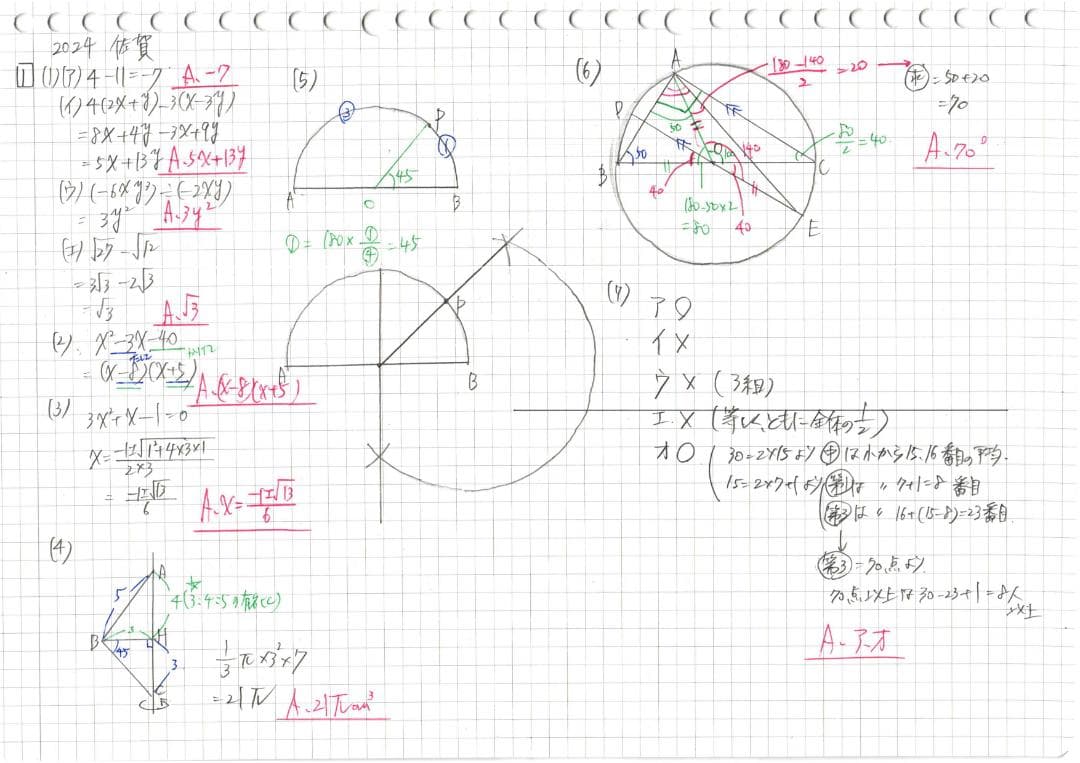 2024 佐賀
1 (1)(ア) 4-11=-7 A.-7
(イ) 4(2x+y)-3(x-3y)
=8x+4y-3x+9y
=5x+13y A.5x+13y
(ウ) (-6xy³)÷(-2xy)
= 3y² A.3y²
(エ) √27-√12
=3√3-2√3
=√3 A.√3
(2). x²-3x-40
たして かけて
=(x-8)(x+5)
A.(x-8)(x+5)
(3)
3x²+x-1=0
x=(-1±√(1²+4×3×1))/(2×3)
= (-1±√13)/6
A.x=(-1±√13)/6
(4)
A
5
4(3:4:5の直角に)
B 3 H
45
3
C
1/3π×3²×7
=21π A.21πcm³
(5)
③
P
①
45
A O B
①=180×①/④=45
P
A B
(6)
A
(180-140)/2=20
=50+20
=70
A.70°
D
50
80/2=40
B 50 O 100 140 C
40
180-50×2
=80
40
E
(7)
ア○
イ×
ウ×(3組)
エ.×(等しく、ともに全体の1/2)
オ○
30=2×15より㊥は小から15,16番目の平均.
15=2×7+1より第1は〃7+1=8番目
第3は〃16+(15-8)=23番目.
↓
第3=70点より.
70点以上は30-23+1=8人
以上
A.ア.オ